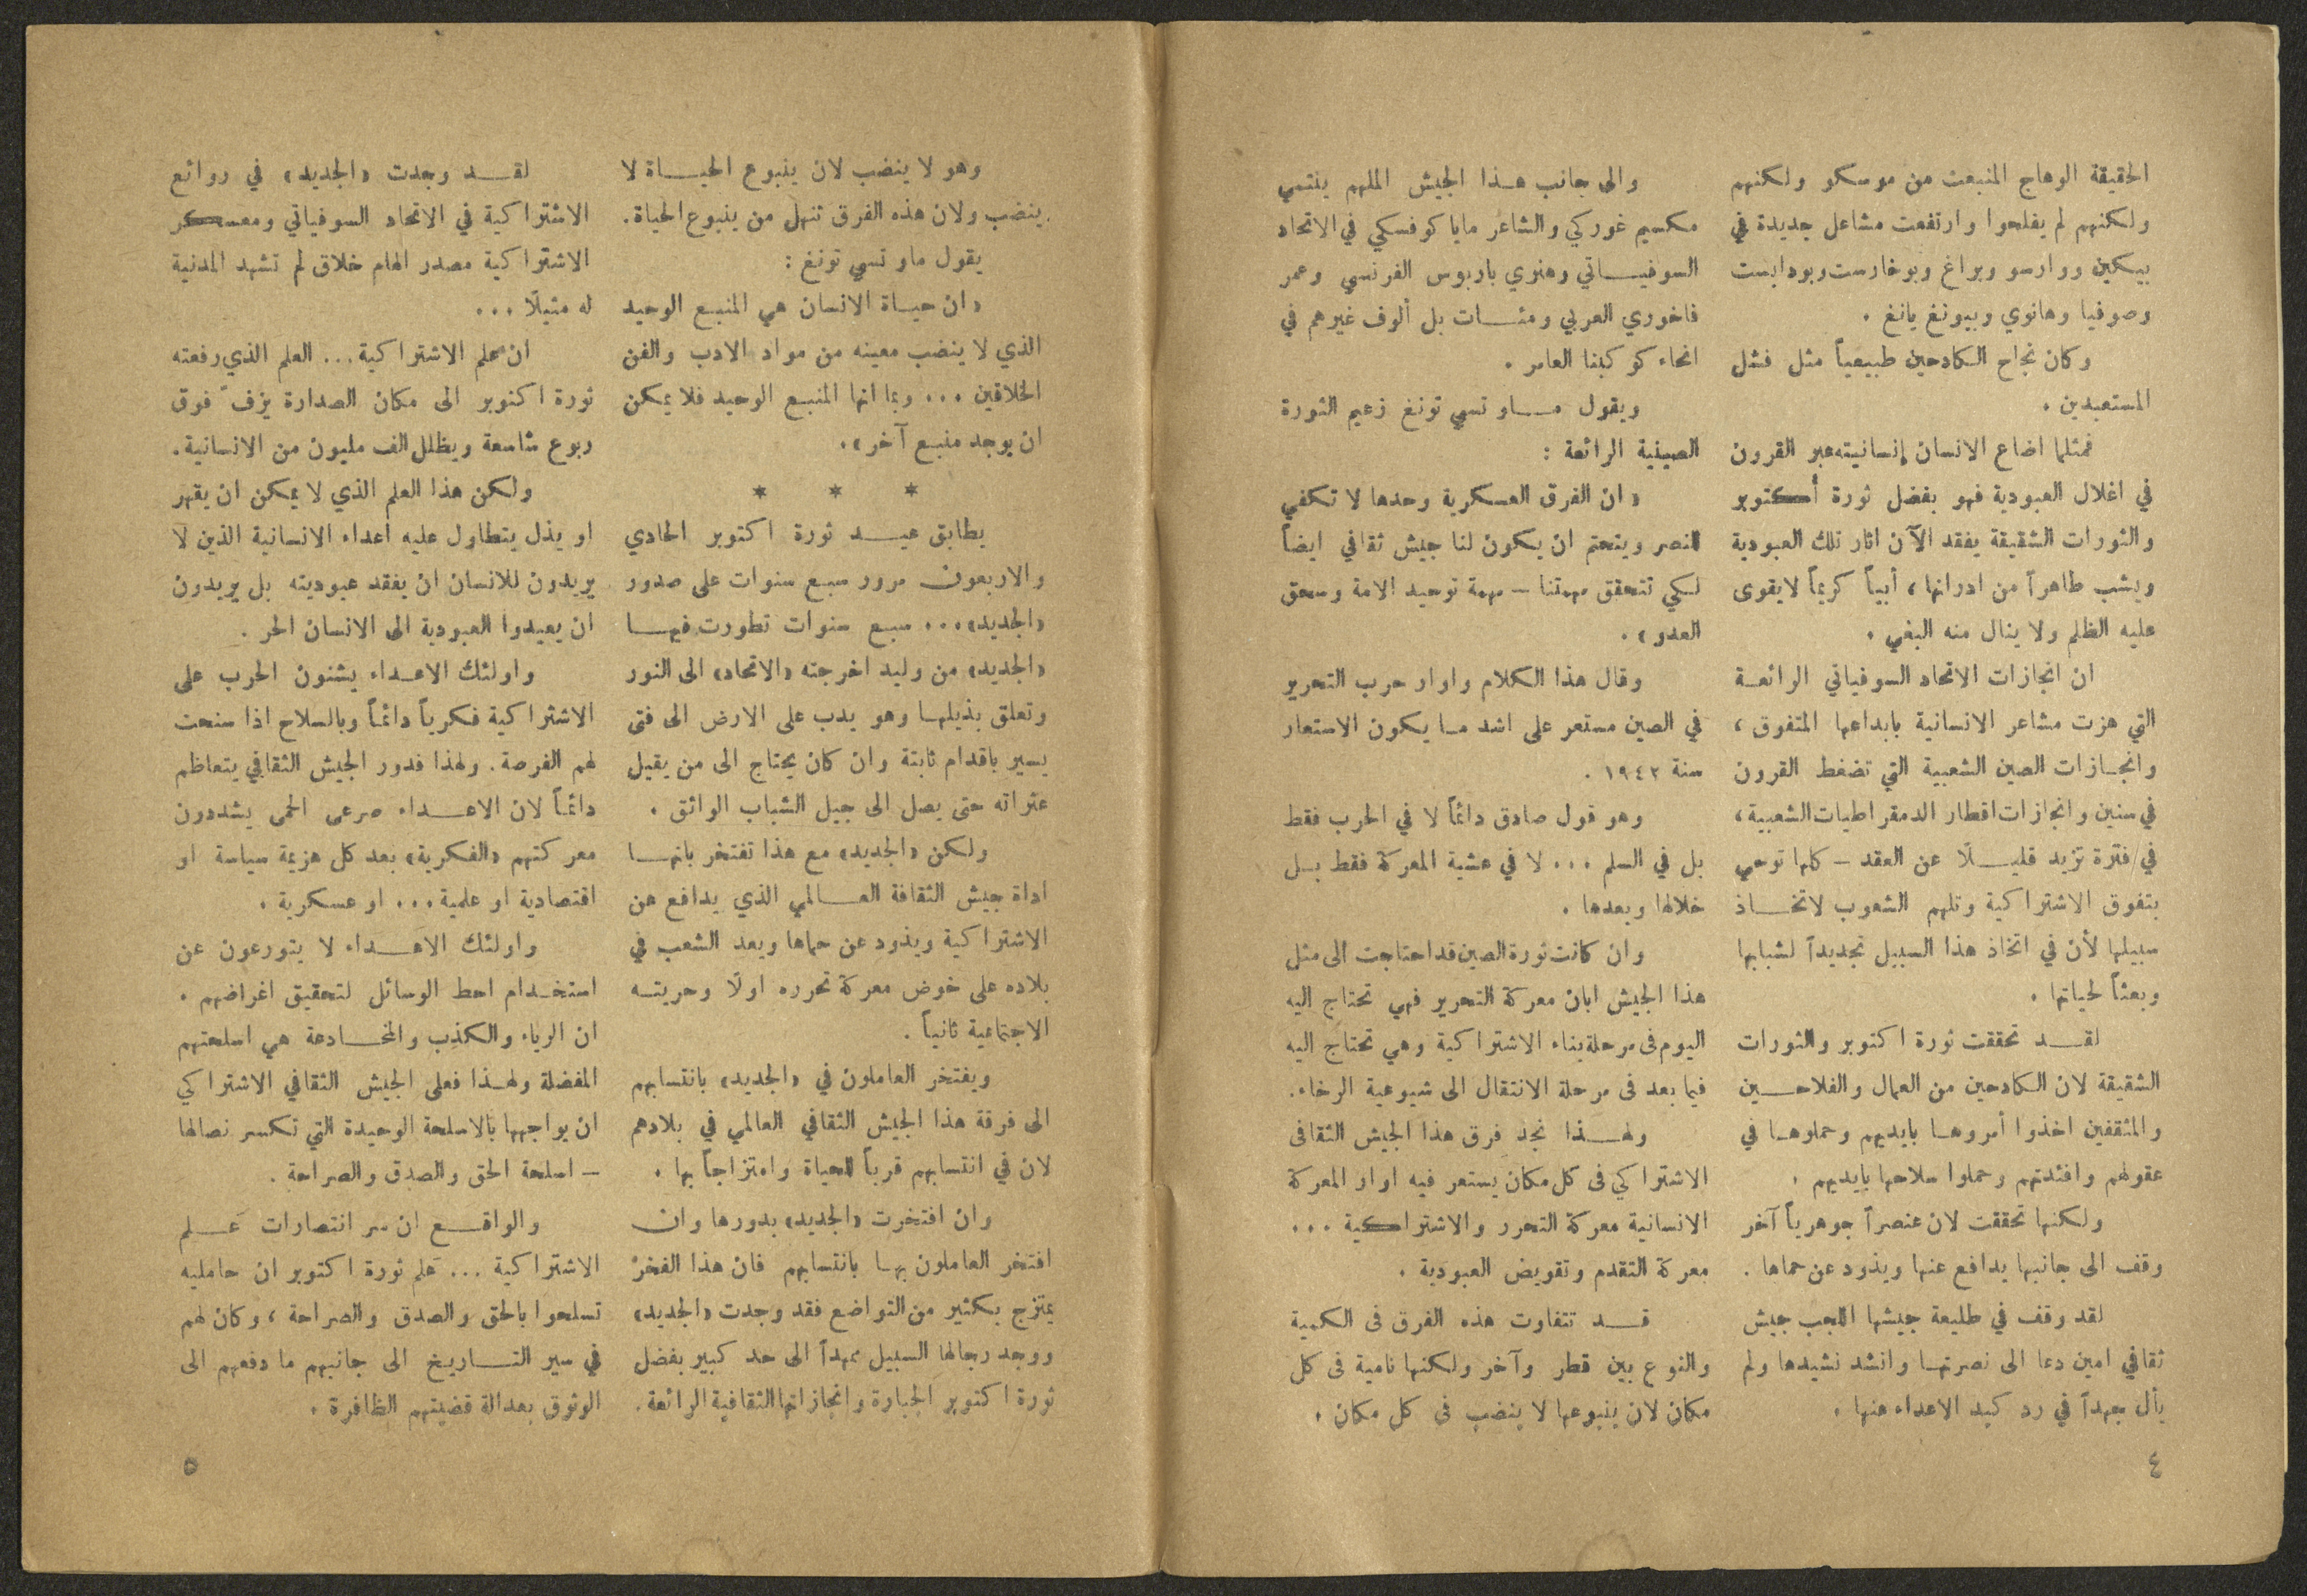 الحقيقة الوهاج المنبعث من موسكو ولكنهم
ولكنهم لم يفلحوا وارتفعت مشاعل جديدة في
بيكين ووارسو وبراغ وبوخارست وبودابست
وصوفيا وهانوي وبيونغ يانغ .
وكان نجاح الكادحين طبيعياً مثل فشل
المستعبدين .
فمثلما اضاع الانسان إنسانيته عبر القرون
في اغلال العبودية فهو بفضل ثورة أكتوبر
والثورات الشقيقة يفقد الآن اثار تلك العبودية
ويشب طاهراً من ادرانها ، أبياً كريماً لا يقوى
عليه الظلم ولا ينال منه البغي .
ان انجازات الاتحاد السوفياتي الرائعة
التي هزت مشاعر الانسانية بابداعها المتفوق ،
وانجازات الصين الشعبية التي تضغط القرون
في سنين وانجازات اقطار الدمقراطيات الشعبية ،
في فترة تزيد قليلاً عن العقد – كلها توحي
بتفوق الاشتراكية وتلهم الشعوب لاتخاذ
سبيلها لأن في اتخاذ هذا السبيل تجديداً لشبابها
وبعثاً لحياتها .
لقد تحققت ثورة اكتوبر والثورات
الشقيقة لان الكادحين من العمال والفلاحين
والمثقفين اخذوا أمروها بايديهم وحملوها في
عقولهم وافئدتهم وحملوا سلاحها بايديهم .
ولكنها تحققت لان عنصراً جوهرياً آخر
وقف الى جانبها يدافع عنها ويذود عن حماها .
لقد وقف في طليعة جيشها اللجب جيش
ثقافي امين دعا الى نصرتها وانشد نشيدها ولم
يأل جهداً في رد كيد الاعداء عنها .
٤
والى جانب هذا الجيش الملهم ينتمي
مكسيم غوركي والشاعر ماياكوفسكي في الاتحاد
السوفياتي وهنري باربوس الفرنسي وعمر
فاخوري العربي ومئات بل ألوف غيرهم في
انحاء كوكبنا العامر .
ويقول ماو تسي تونغ زعيم الثورة
الصينية الرائعة :
« ان الفرق العسكرية وحدها لا تكفي
للنصر ويتحتم ان يكون لنا جيش ثقافي ايضاً
لكي تتحقق مهمتنا – مهمة توحيد الامة وسحق
العدو » .
وقال هذا الكلام واوار حرب التحرير
في الصين مستعر على اشد ما يكون الاستعار
سنة ١٩٤٢ .
وهو قول صادق دائماً لا في الحرب فقط
بل في السلم ... لا في عشية المعركة فقط بل
خلالها وبعدها .
وان كانت ثورة الصين قد احتاجت الى مثل
هذا الجيش ابان معركة التحرير فهي تحتاج اليه
اليوم في مرحلة بناء الاشتراكية وهي تحتاج اليه
فيما بعد في مرحلة الانتقال الى شيوعية الرخاء .
ولهذا نجد فرق هذا الجيش الثقافى
الاشتراكي في كل مكان يستعر فيه اوار المعركة
الانسانية معركة التحرر والاشتراكية ...
معركة التقدم وتقويض العبودية .
قد تتفاوت هذه الفرق فى الكمية
والنوع بين قطر وآخر ولكنها نامية فى كل
مكان لان ينبوعها لا ينضب في كل مكان .
وهو لا ينضب لان ينبوع الحياة لا
ينضب ولان هذه الفرق تنهل من ينبوع الحياة .
يقول ماو تسي تونغ :
« ان حياة الانسان هي المنبع الوحيد
الذي لا ينضب معينه من مواد الادب والفن
الخلاقين ... وبما انها المنبع الوحيد فلا يمكن
ان يوجد منبع آخر » .
* * *
يطابق عيد ثورة اكتوبر الحادي
والاربعون مرور سبع سنوات على صدور
«الجديد» ... سبع سنوات تطورت فيها
«الجديد» من وليد اخرجته «الاتحاد» الى النور
وتعلق بذيلها وهو يدب على الارض الى فتى
يسير باقدام ثابتة وان كان يحتاج الى من يقيل
عثراته حتى يصل الى جيل الشباب الواثق .
ولكن «الجديد» مع هذا تفتخر بانها
اداة جيش الثقافة العالمي الذي يدافع عن
الاشتراكية ويذود عن حماها ويعد الشعب في
بلاده على خوض معركة تحرره اولاً وحريته
الاجتماعية ثانياً .
ويفتخر العاملون في «الجديد» بانتسابهم
الى فرقة هذا الجيش الثقافي العالمي في بلادهم
لان في انتسابهم قرباً للحياة وامتزاجاً بها .
وان افتخرت «الجديد» بدورها وان
افتخر العاملون بها بانتسابهم فان هذا الفخر
يمتزج بكثير من التواضع فقد وجدت «الجديد»
ووجد رجالها السبيل ممهداً الى حد كبير بفضل
ثورة اكتوبر الجبارة وانجازاتها الثقافية الرائعة .
لقد وجدت «الجديد» في روائع
الاشتراكية في الاتحاد السوفياتي ومعسكر
الاشتراكية مصدر الهام خلاق لم تشهد المدنية
له مثيلاً ...
ان علم الاشتراكية ... العلم الذي رفعته
ثورة اكتوبر الى مكان الصدارة يزفّ فوق
ربوع شاسعة ويظلل الف مليون من الانسانية .
ولكن هذا العلم الذي لا يمكن ان يقهر
او يذل يتطاول عليه اعداء الانسانية الذين لا
يريدون للانسان ان يفقد عبوديته بل يريدون
ان يعيدوا العبودية الى الانسان الحر .
واولئك الاعداء يشنون الحرب على
الاشتراكية فكرياً دائماً وبالسلاح اذا سنحت
لهم الفرصة . ولهذا فدور الجيش الثقافي يتعاظم
دائماً لان الاعداء صرعى الحمى يشددون
معركتهم «الفكرية» بعد كل هزيمة سياسة او
اقتصادية او علمية ... او عسكرية .
واولئك الاعداء لا يتورعون عن
استخدام احط الوسائل لتحقيق اغراضهم .
ان الرياء والكذب والمخادعة هي اسلحتهم
المفضلة ولهذا فعلى الجيش الثقافي الاشتراكي
ان يواجهها بالاسلحة الوحيدة التي تكسر نصالها
– اسلحة الحق والصدق والصراحة .
والواقع ان سر انتصارات عَلم
الاشتراكية ... عَلم ثورة اكتوبر ان حامليه
تسلحوا بالحق والصدق والصراحة ، وكان لهم
في سير التاريخ الى جانبهم ما دفعهم الى
الوثوق بعدالة قضيتهم الظافرة .
٥